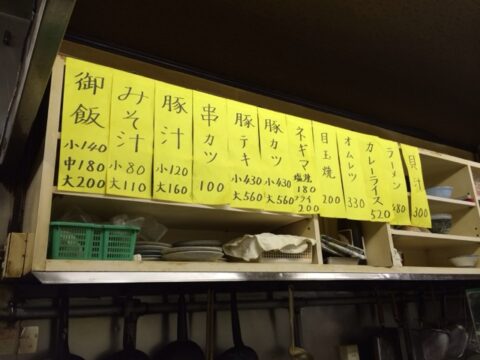 御飯
小140
中180
大200
みそ汁
小80
大110
豚汁
小120
大160
串カツ
100
豚テキ
小430
大560
豚カツ
小430
大560
ネギマ
塩焼
180
フライ
200
目玉焼
200
オムレツ
330
カレーライス
520
ラーメン
480
貝汁
300